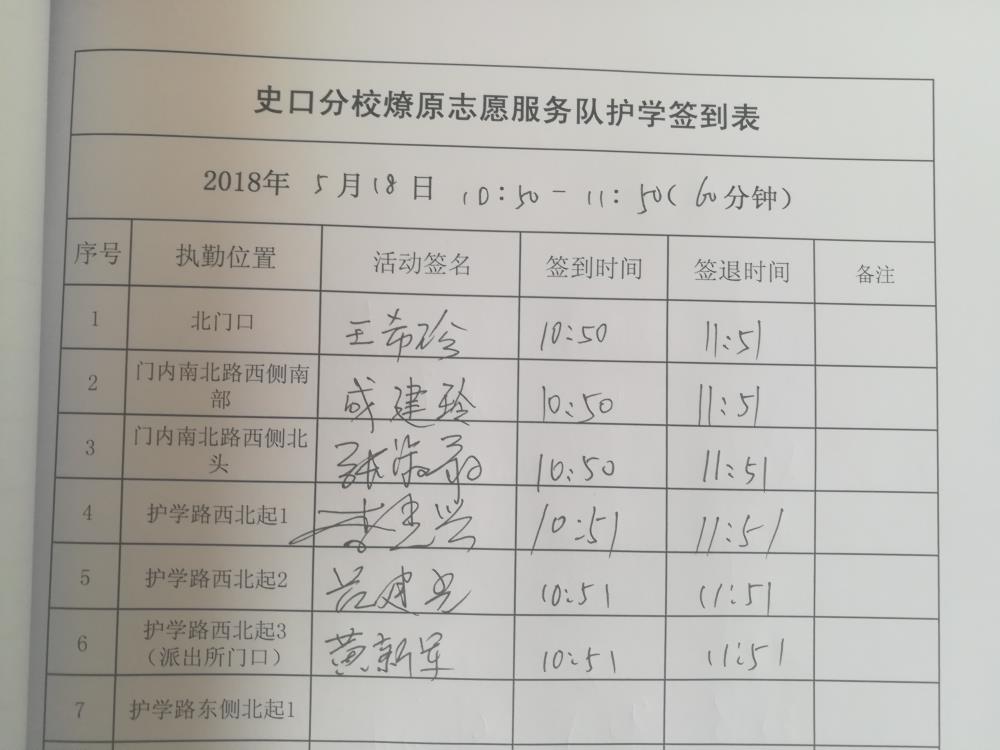 史口分校燎原志愿服务队护学签到表
2018年 5月18日 10:50-11:50(60分钟)
序号 执勤位置 活动签名 签到时间 签退时间 备注
1 北门口 王希玲 10:50 11:51
2 门内南北路西侧南
部 成建玲 10:50 11:51
3 门内南北路西侧北
头 张 10:50 11:51
4 护学路西北起1 李建兴 10:51 11:51
5 护学路西北起2 吕建光 10:51 11:51
6 护学路西北起3
（派出所门口） 黄新军 10:51 11:51
7 护学路东侧北起1